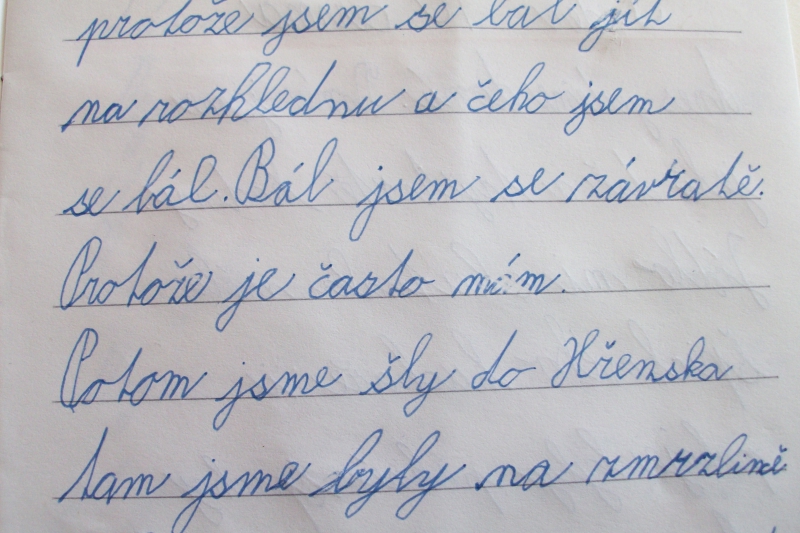 protože jsem se bál jít
na rozhlednu a čeho jsem
se bál. Bál jsem se závratě.
Protože je často mám.
Potom jsme šly do Hřenska
tam jsme byly na zmrzlině